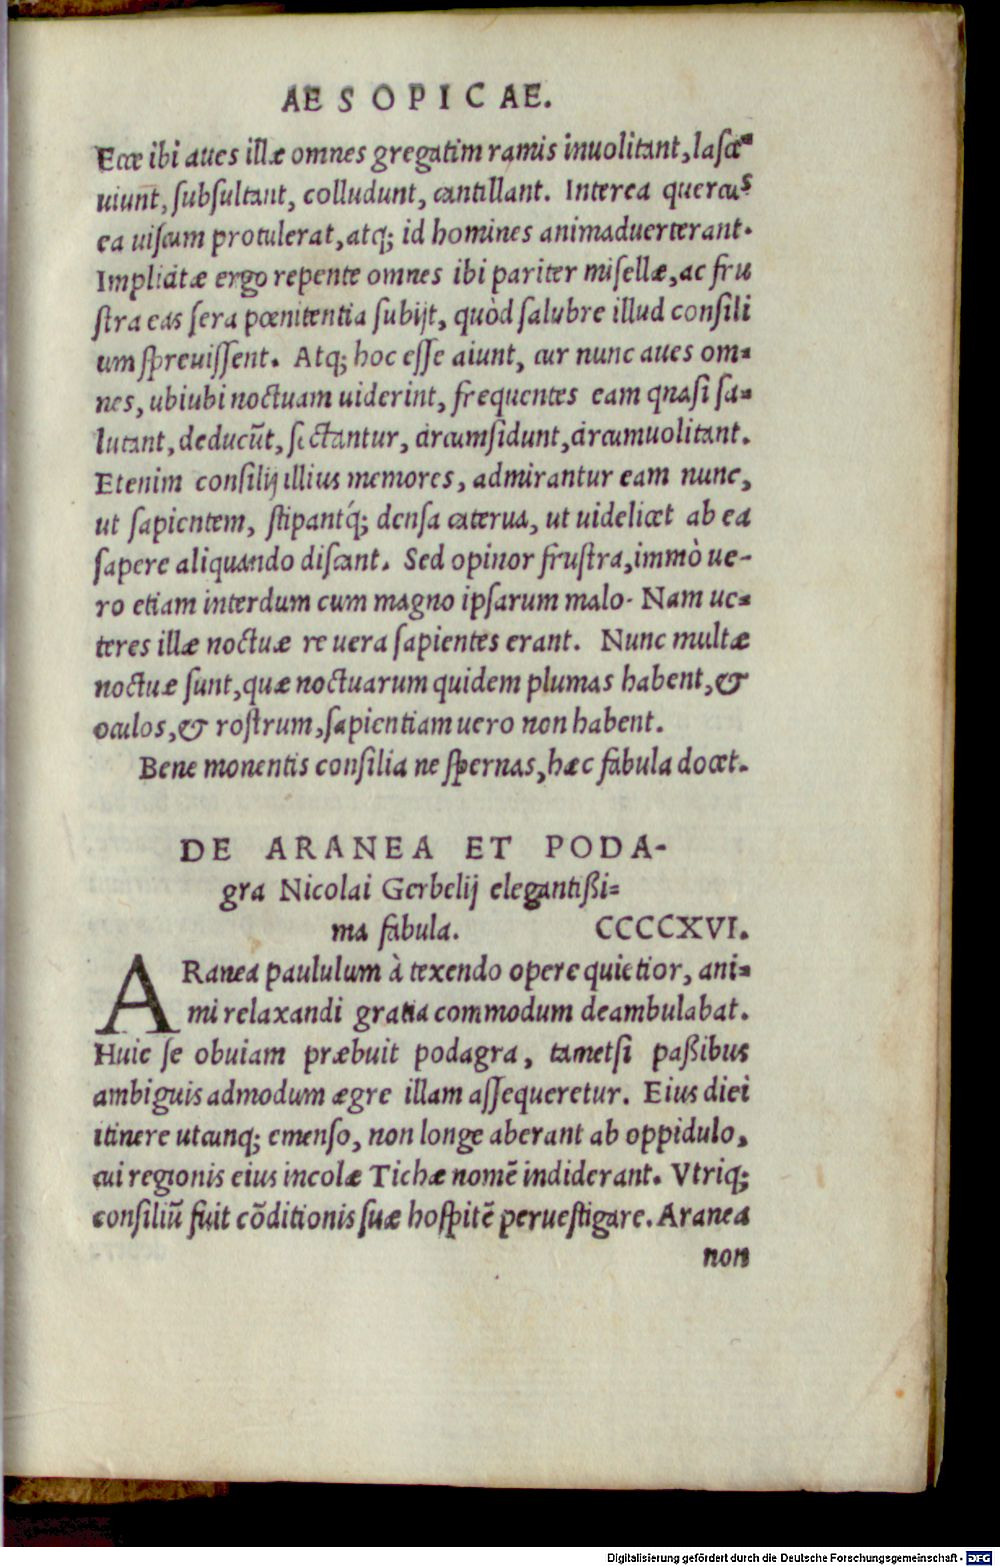 AESOPICAE.
Ecce ibi aues illæ omnes gregatim ramis inuolitant, lasci⸗
uiunt, subsultant, colludunt, cantillant. Interea quercus
ea uiscum protulerat, atq; id homines animaduerterant.
Implicitæ ergo repente omnes ibi pariter misellæ, ac fru
stra eas sera pœnitentia subijt, quòd salubre illud consili
um spreuissent. Atq; hoc esse aiunt, cur nunc aues om⸗
nes, ubiubi noctuam uiderint, frequentes eam quasi sa⸗
lutant, deducūt, sectantur, circumsidunt, circumuolitant.
Etenim consilij illius memores, admirantur eam nunc,
ut sapientem, stipantq́; densa caterua, ut uidelicet ab ea
sapere aliquando discant. Sed opinor frustra, immò ue-
ro etiam interdum cum magno ipsarum malo. Nam ue⸗
teres illæ noctuæ re uera sapientes erant. Nunc multæ
noctuæ sunt, quæ noctuarum quidem plumas habent, &
oculos, & rostrum, sapientiam uero non habent.
Bene monentis consilia ne spernas, hæc fabula docet.
DE ARANEA ET PODA-
gra Nicolai Gerbelij elegantißi⸗
ma fabula. CCCCXVI.
ARanea paululum à texendo opere quietior, ani⸗
mi relaxandi gratia commodum deambulabat.
Huic se obuiam præbuit podagra, tametsi paßibus
ambiguis admodum ægre illam assequeretur. Eius diei
itinere utcunq; emenso, non longe aberant ab oppidulo,
cui regionis eius incolæ Tichæ nomē indiderant. Vtriq;
consiliū fuit cōditionis suæ hospitē peruestigare. Aranea
non
Digitalisierung gefördert durch die Deutsche Forschungsgemeinschaft - DFG